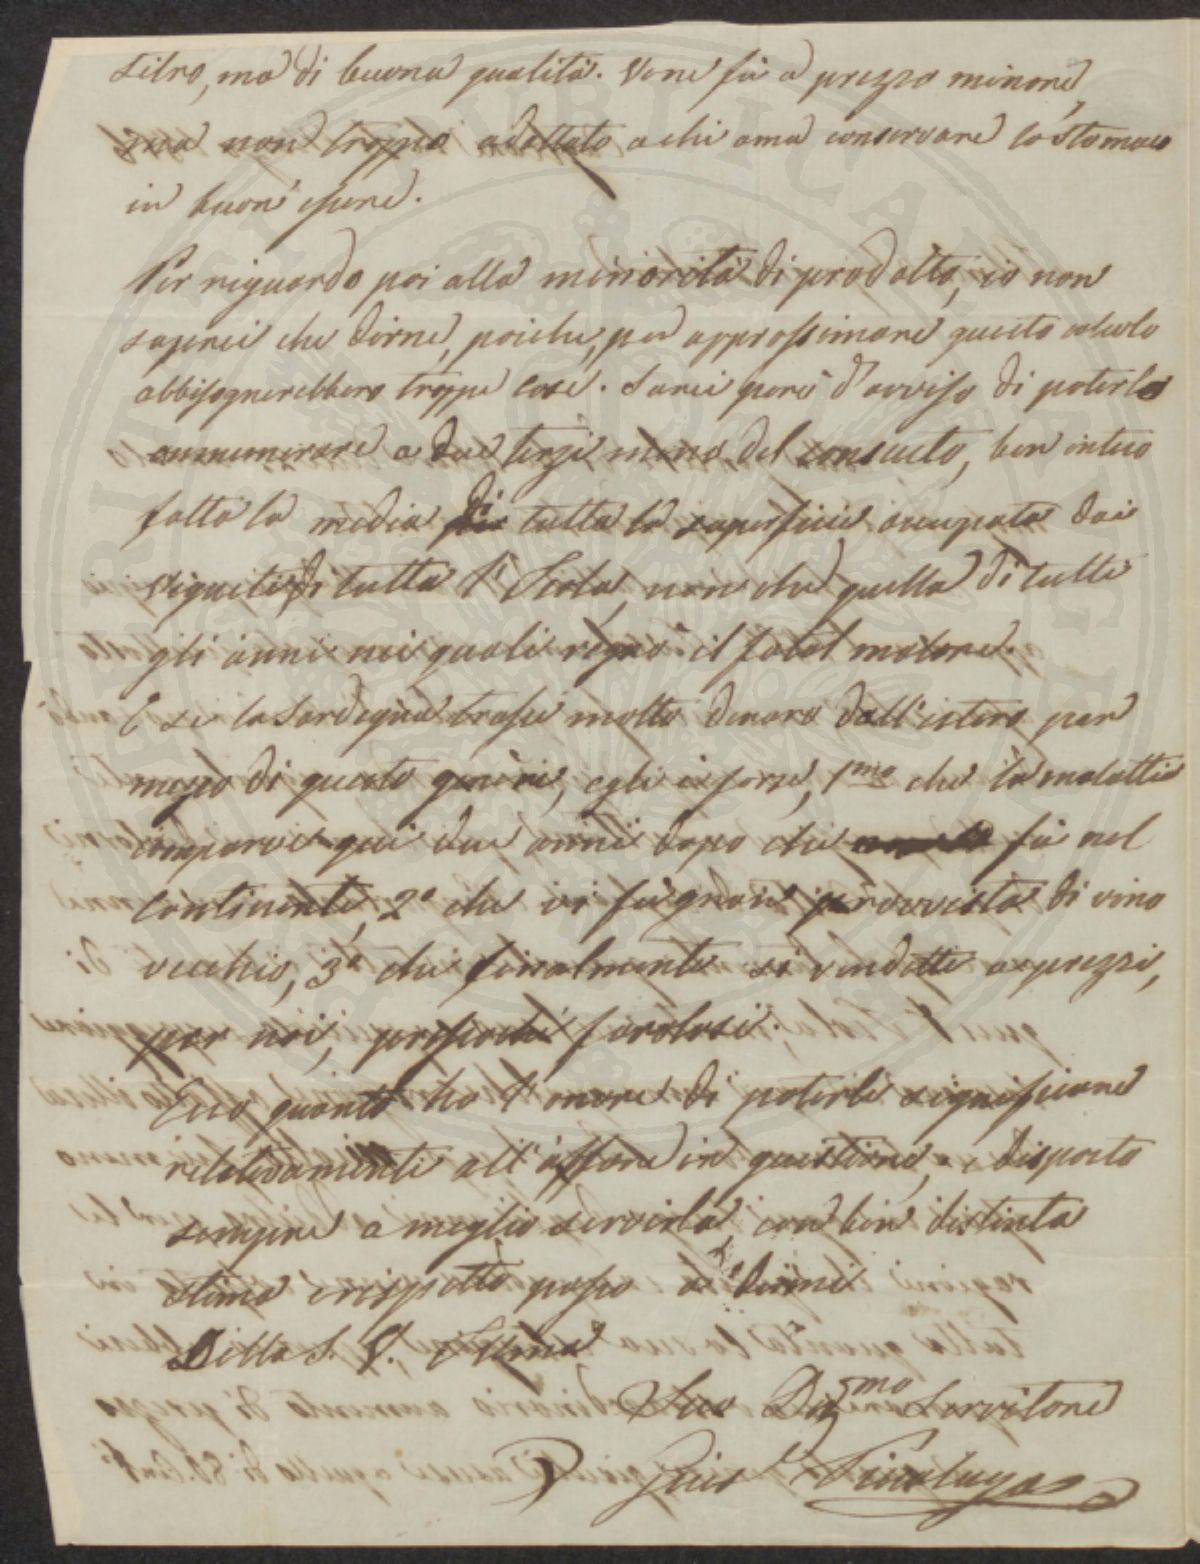 Litro, ma di buona qualità. Vene fù a prezzo minore,
ma non troppo adattato a chi ama conservare lo stomaco
in buon' essere.
Per riguardo poi alla minorità di prodotto, io non
saprei che dirne, poiche, per approssimare questo calcolo
abbisognerebbero troppe cose. Sarei però d'avviso di poterlo
annumerare a due terzi meno del consueto, ben inteso
fatta la media di tutta la superficie occupata dai
vigneti di tutta l'Isola, non che quella di tutti
gli anni nei quali regnò il fatal malore.
E se la Sardegna trasse molto denaro dall'estero per
mezzo di questo genere, egli è forse, 1mo che la malattia
comparve qui due anni dopo che fù nel
Continente, 2° che vi fù gran provvista di vino
vecchio, 3° che finalmente si vendette a prezzi,
per noi, pressochè favolosi.
Ecco quanto ho l'onore di poterle significare
relativamente all'affare in questione, e disposto
sempre a meglio servirla, con ben distinta
stima e rispetto passo a dirmi
Della S. V. Illma
Suo Devmo Servitore